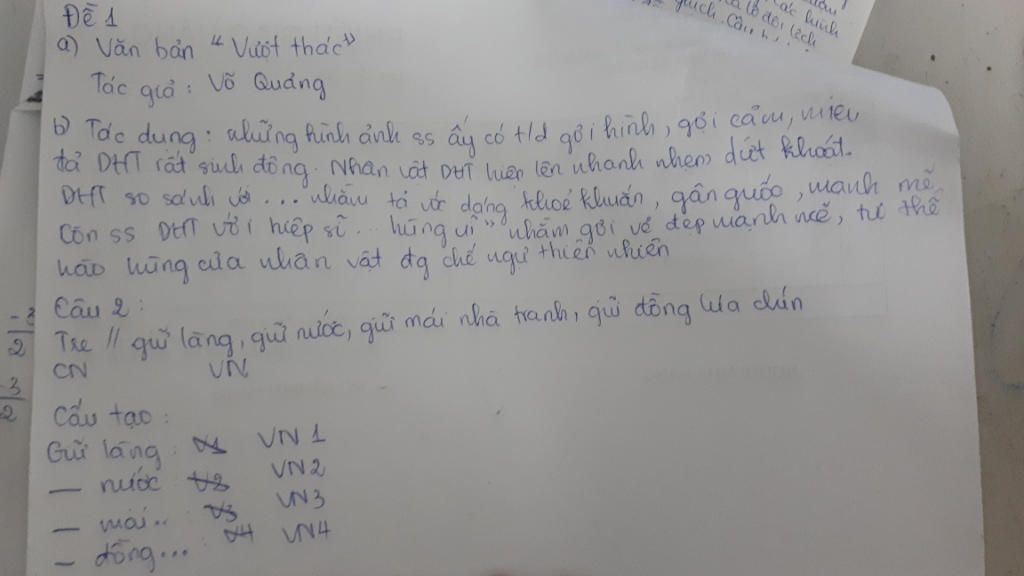 Đề 1
a) Văn bản "Vượt thác"
Tác giả: Võ Quảng
b) Tác dụng: những hình ảnh ss ấy có t/d gợi hình, gợi cảm, miêu
tả DHT rất sinh động. Nhân vật DHT hiện lên nhanh nhẹn, dứt khoát.
DHT so sánh với ... nhằm tả vóc dáng khoẻ khuắn, gân guốc, mạnh mẽ,
Còn ss DHT với hiệp sĩ ... hùng vĩ" nhằm gợi vẻ đẹp mạnh mẽ, tư thế
hào hùng của nhân vật đg chế ngự thiên nhiên
Câu 2:
Tre // giữ làng, giữ nước, giữ mái nhà tranh, giữ đồng lúa chín
CN VN
Cấu tạo:
Giữ làng: V1 VN 1
— nước V2 VN2
— mái.. V3 VN3
— đồng... V4 VN4
-3
2
-3
2
các hình